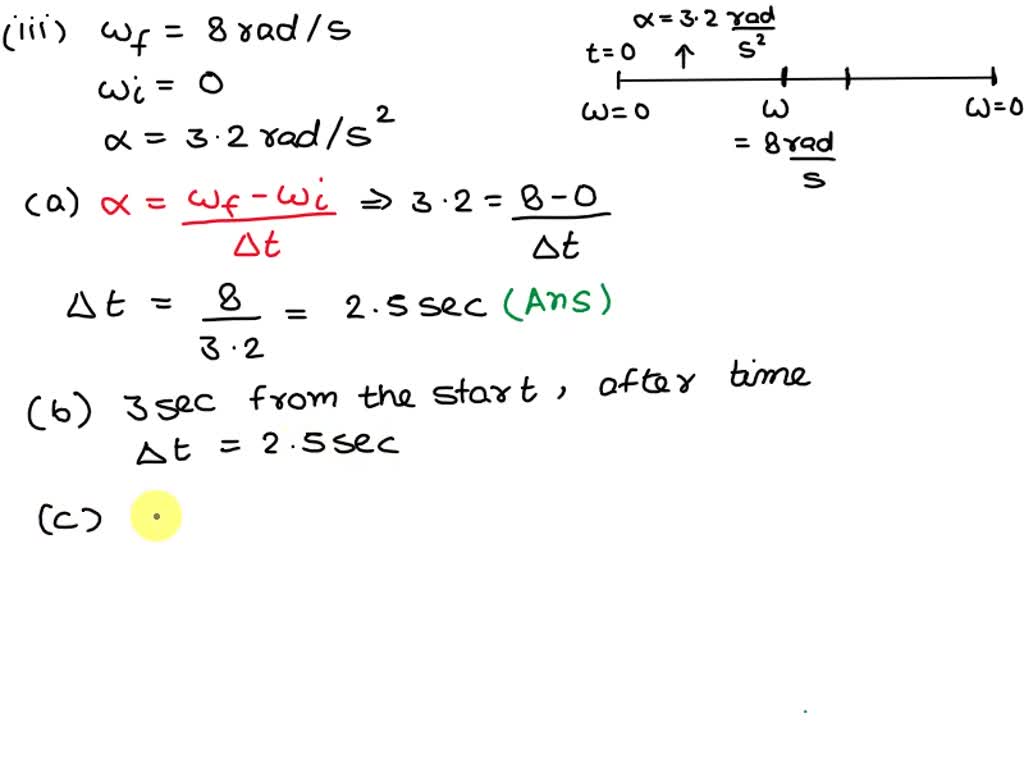 (iii) ωf = 8 rad/s
ωi = 0
α = 3.2 rad/s²
α = 3.2 rad/s²
t=0 ↑
ω=0 ω = 8 rad/s ω=0
(a) α = (ωf - ωi)/Δt ⇒ 3.2 = (8-0)/Δt
Δt = 8/3.2 = 2.5 sec (Ans)
(b) 3 sec from the start, after time
Δt = 2.5 sec
(c)